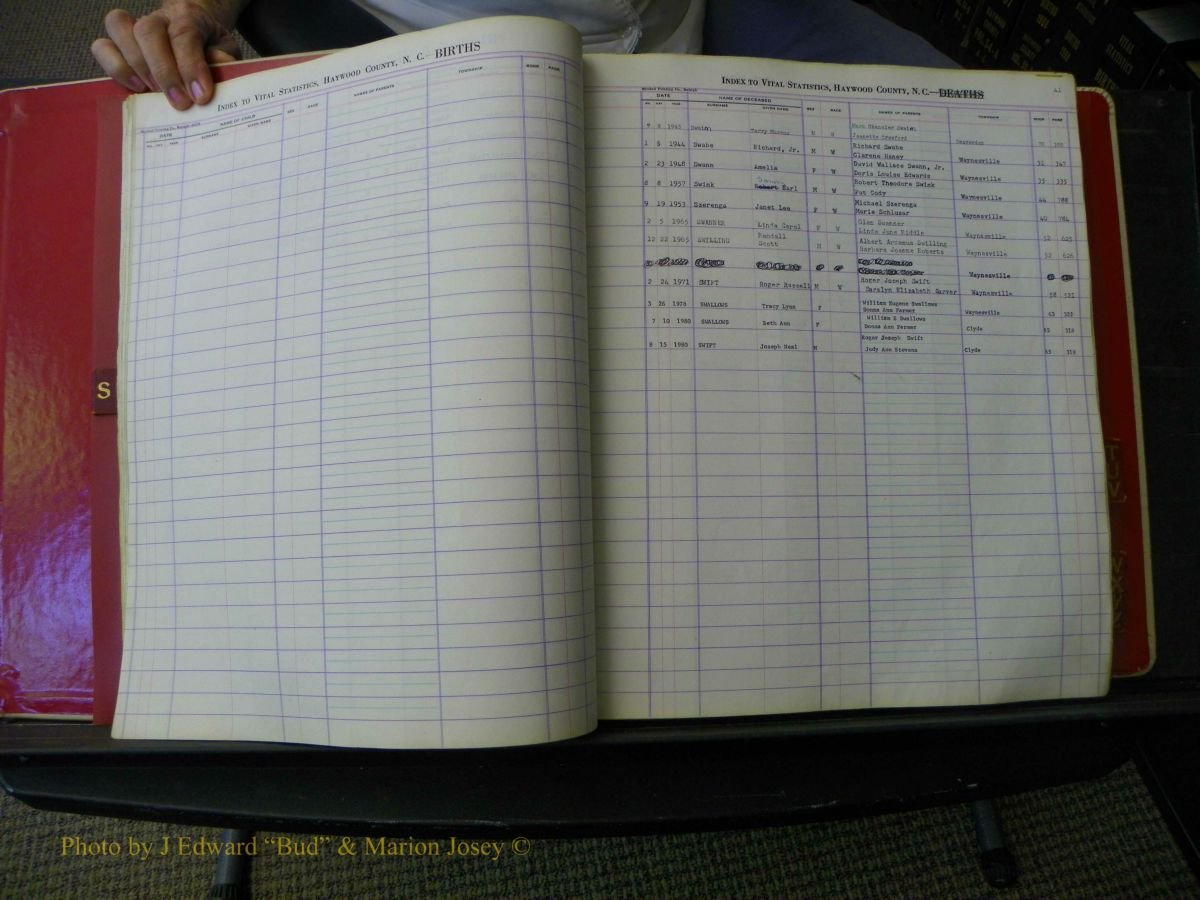 INDEX TO VITAL STATISTICS, HAYWOOD COUNTY, N. C.—BIRTHS
DATE NAME OF CHILD SEX RACE NAMES OF PARENTS TOWNSHIP BOOK PAGE
SURNAME GIVEN NAME
S
INDEX TO VITAL STATISTICS, HAYWOOD COUNTY, N. C.—DEATHS 41
DATE NAME OF DECEASED SEX RACE NAMES OF PARENTS TOWNSHIP BOOK PAGE
MO. DAY YEAR SURNAME GIVEN NAME
Swain Terry
Swain
Jeanette Crawford
1 5 1944 Swabe Richard, Jr. M W Richard Swabe
Clarene Haney Waynesville 31 347
2 23 1948 Swann Amelia F W David Wallace Swann, Jr.
Doris Louise Edwards Waynesville 35 335
8 8 1957 Swink Robert Earl M W Robert Theodore Swink
Pat Cody Waynesville 44 788
9 19 1953 Szerenga Janet Lee F W Michael Szerenga
Marie Schluzar Waynesville 40 784
2 5 1965 SWANNER Linda Carol F W Glen Swanner
Linda June Riddle Waynesville 52 625
12 22 1965 SWILLING Randall
Scott M W Albert Swilling
Barbara Joaene Roberts Waynesville 52 626
Waynesville
2 24 1971 SWIFT Roger Russell M W Roger Joseph Swift
Caralyn Elizabeth Garver Waynesville 58 521
3 26 1978 SWALLOWS Tracy Lynn F William Eugene Swallows
Donna Ann Farmer Waynesville 63
7 10 1980 SWALLOWS Beth Ann F William E Swallows
Donna Ann Farmer Clyde 65 318
8 15 1980 SWIFT Joseph Neal M Roger Joseph Swift
Judy Ann Stevens Clyde 65 318
TUV
VITAL STATISTICS
Photo by J Edward “Bud” & Marion Josey ©